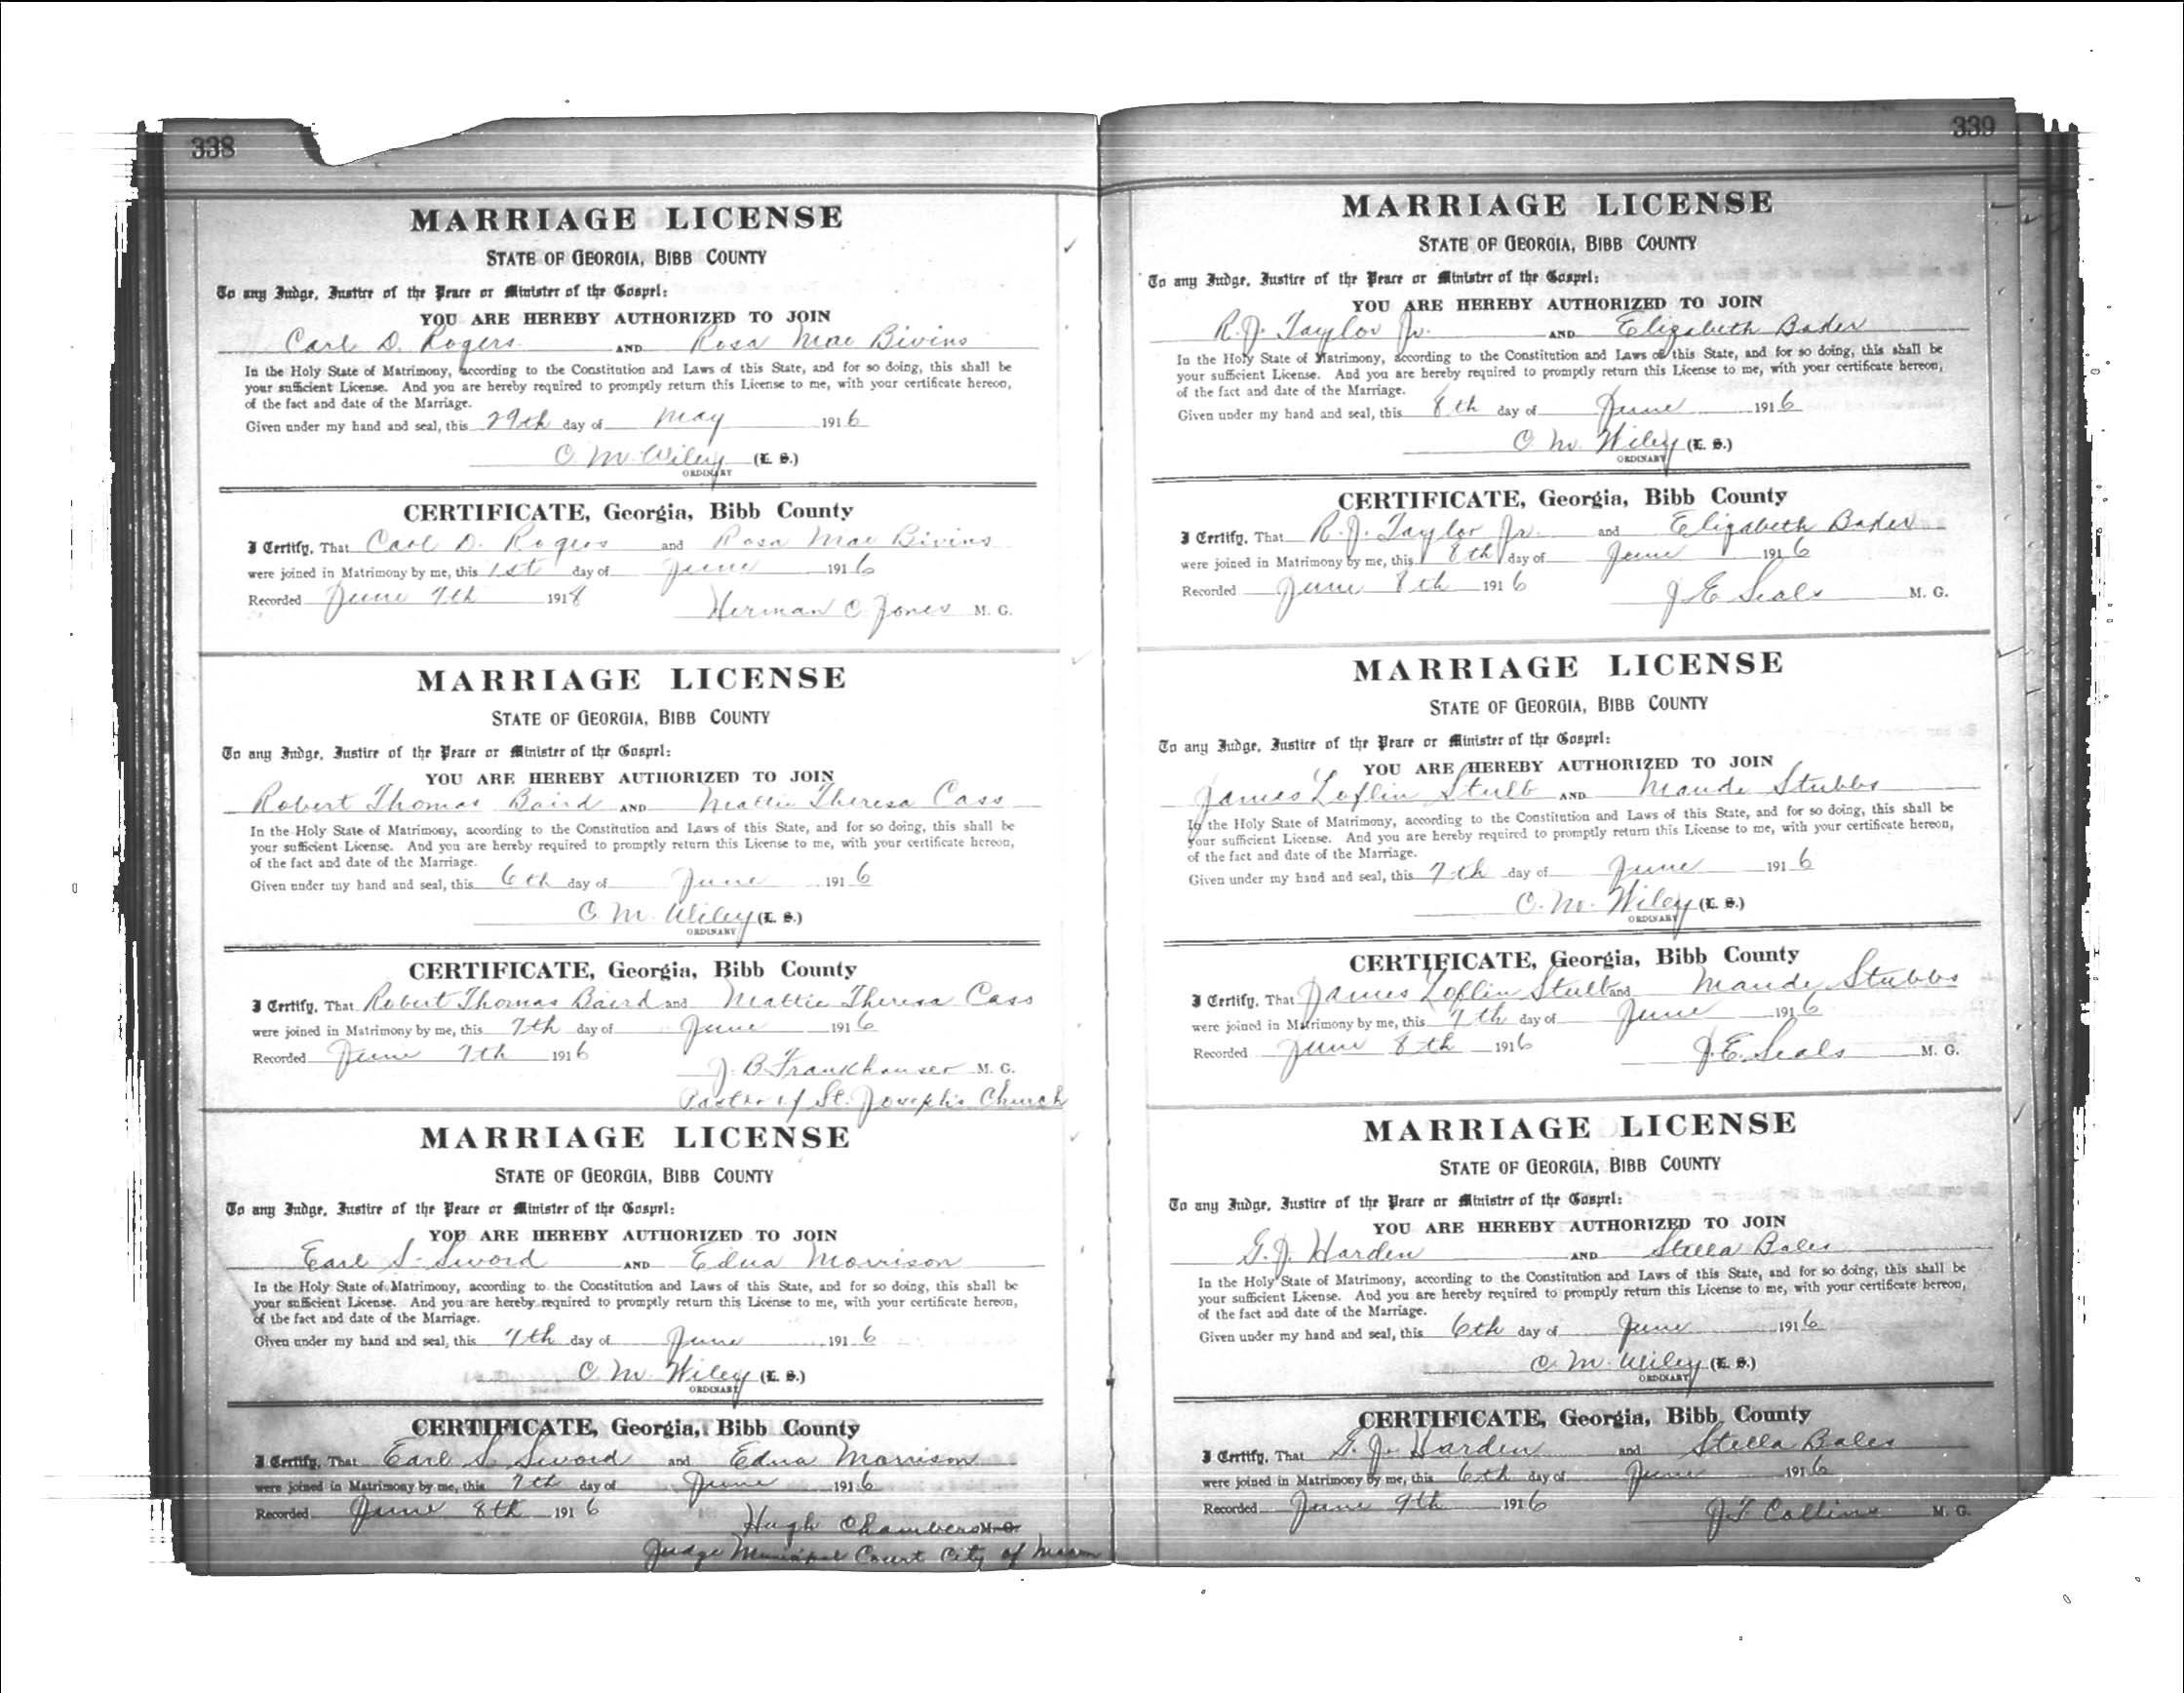 338
MARRIAGE LICENSE
STATE OF GEORGIA, BIBB COUNTY
To any Judge, Justice of the Peace or Minister of the Gospel:
YOU ARE HEREBY AUTHORIZED TO JOIN
Carl D. Rogers AND Rosa Mae Bivins
In the Holy State of Matrimony, according to the Constitution and Laws of this State, and for so doing, this shall be
your sufficient License. And you are hereby required to promptly return this License to me, with your certificate hereon,
of the fact and date of the Marriage.
Given under my hand and seal, this 29th day of May 1916
C. M. Wiley (L. S.)
ORDINARY
CERTIFICATE, Georgia, Bibb County
I Certify, That Carl D. Rogers and Rosa Mae Bivins
were joined in Matrimony by me, this 1st day of June 1916
Recorded June 7th 1918
Herman C. Jones M. G.
MARRIAGE LICENSE
STATE OF GEORGIA, BIBB COUNTY
To any Judge, Justice of the Peace or Minister of the Gospel:
YOU ARE HEREBY AUTHORIZED TO JOIN
Robert Thomas Baird AND Mattie Theresa Cass
In the Holy State of Matrimony, according to the Constitution and Laws of this State, and for so doing, this shall be
your sufficient License. And you are hereby required to promptly return this License to me, with your certificate hereon,
of the fact and date of the Marriage.
Given under my hand and seal, this 6th day of June 1916
C. M. Wiley (L. S.)
ORDINARY
CERTIFICATE, Georgia, Bibb County
I Certify, That Robert Thomas Baird and Mattie Theresa Cass
were joined in Matrimony by me, this 7th day of June 1916
Recorded June 7th 1916
J. B. Frankhauser M. G.
Pastor of St. Joseph's Church
MARRIAGE LICENSE
STATE OF GEORGIA, BIBB COUNTY
To any Judge, Justice of the Peace or Minister of the Gospel:
YOU ARE HEREBY AUTHORIZED TO JOIN
Earl S. Sword AND Edna Morrison
In the Holy State of Matrimony, according to the Constitution and Laws of this State, and for so doing, this shall be
your sufficient License. And you are hereby required to promptly return this License to me, with your certificate hereon,
of the fact and date of the Marriage.
Given under my hand and seal, this 7th day of June 1916
C. M. Wiley (L. S.)
ORDINARY
CERTIFICATE, Georgia, Bibb County
I Certify, That Earl S. Sword and Edna Morrison
were joined in Matrimony by me, this 7th day of June 1916
Recorded June 8th 1916
Hugh Chambers M. G.
Judge Municipal Court City of Macon
339
MARRIAGE LICENSE
STATE OF GEORGIA, BIBB COUNTY
To any Judge, Justice of the Peace or Minister of the Gospel:
YOU ARE HEREBY AUTHORIZED TO JOIN
R. J. Taylor Jr. AND Elizabeth Baker
In the Holy State of Matrimony, according to the Constitution and Laws of this State, and for so doing, this shall be
your sufficient License. And you are hereby required to promptly return this License to me, with your certificate hereon,
of the fact and date of the Marriage.
Given under my hand and seal, this 8th day of June 1916
C. M. Wiley (L. S.)
ORDINARY
CERTIFICATE, Georgia, Bibb County
I Certify, That R. J. Taylor Jr. and Elizabeth Baker
were joined in Matrimony by me, this 8th day of June 1916
Recorded June 8th 1916
J. E. Seals M. G.
MARRIAGE LICENSE
STATE OF GEORGIA, BIBB COUNTY
To any Judge, Justice of the Peace or Minister of the Gospel:
YOU ARE HEREBY AUTHORIZED TO JOIN
James Loflin Stulb AND Maude Stubbs
In the Holy State of Matrimony, according to the Constitution and Laws of this State, and for so doing, this shall be
your sufficient License. And you are hereby required to promptly return this License to me, with your certificate hereon,
of the fact and date of the Marriage.
Given under my hand and seal, this 7th day of June 1916
C. M. Wiley (L. S.)
ORDINARY
CERTIFICATE, Georgia, Bibb County
I Certify, That James Loflin Stulb and Maude Stubbs
were joined in Matrimony by me, this 7th day of June 1916
Recorded June 8th 1916
J. E. Seals M. G.
MARRIAGE LICENSE
STATE OF GEORGIA, BIBB COUNTY
To any Judge, Justice of the Peace or Minister of the Gospel:
YOU ARE HEREBY AUTHORIZED TO JOIN
G. J. Harden AND Stella Bales
In the Holy State of Matrimony, according to the Constitution and Laws of this State, and for so doing, this shall be
your sufficient License. And you are hereby required to promptly return this License to me, with your certificate hereon,
of the fact and date of the Marriage.
Given under my hand and seal, this 6th day of June 1916
C. M. Wiley (L. S.)
ORDINARY
CERTIFICATE, Georgia, Bibb County
I Certify, That G. J. Harden and Stella Bales
were joined in Matrimony by me, this 6th day of June 1916
Recorded June 9th 1916
J. T. Collins M. G.